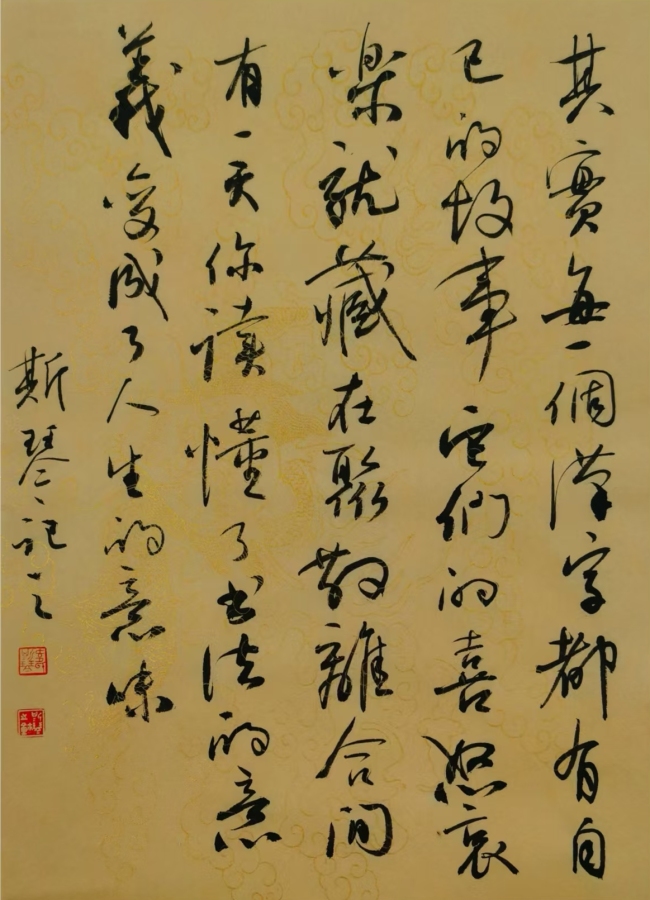 其實每一個漢字都有自
己的故事它們的喜怒哀
樂就藏在聚散離合間
有一天你讀懂了书法的意
義变成了人生的意味
斯琴記之